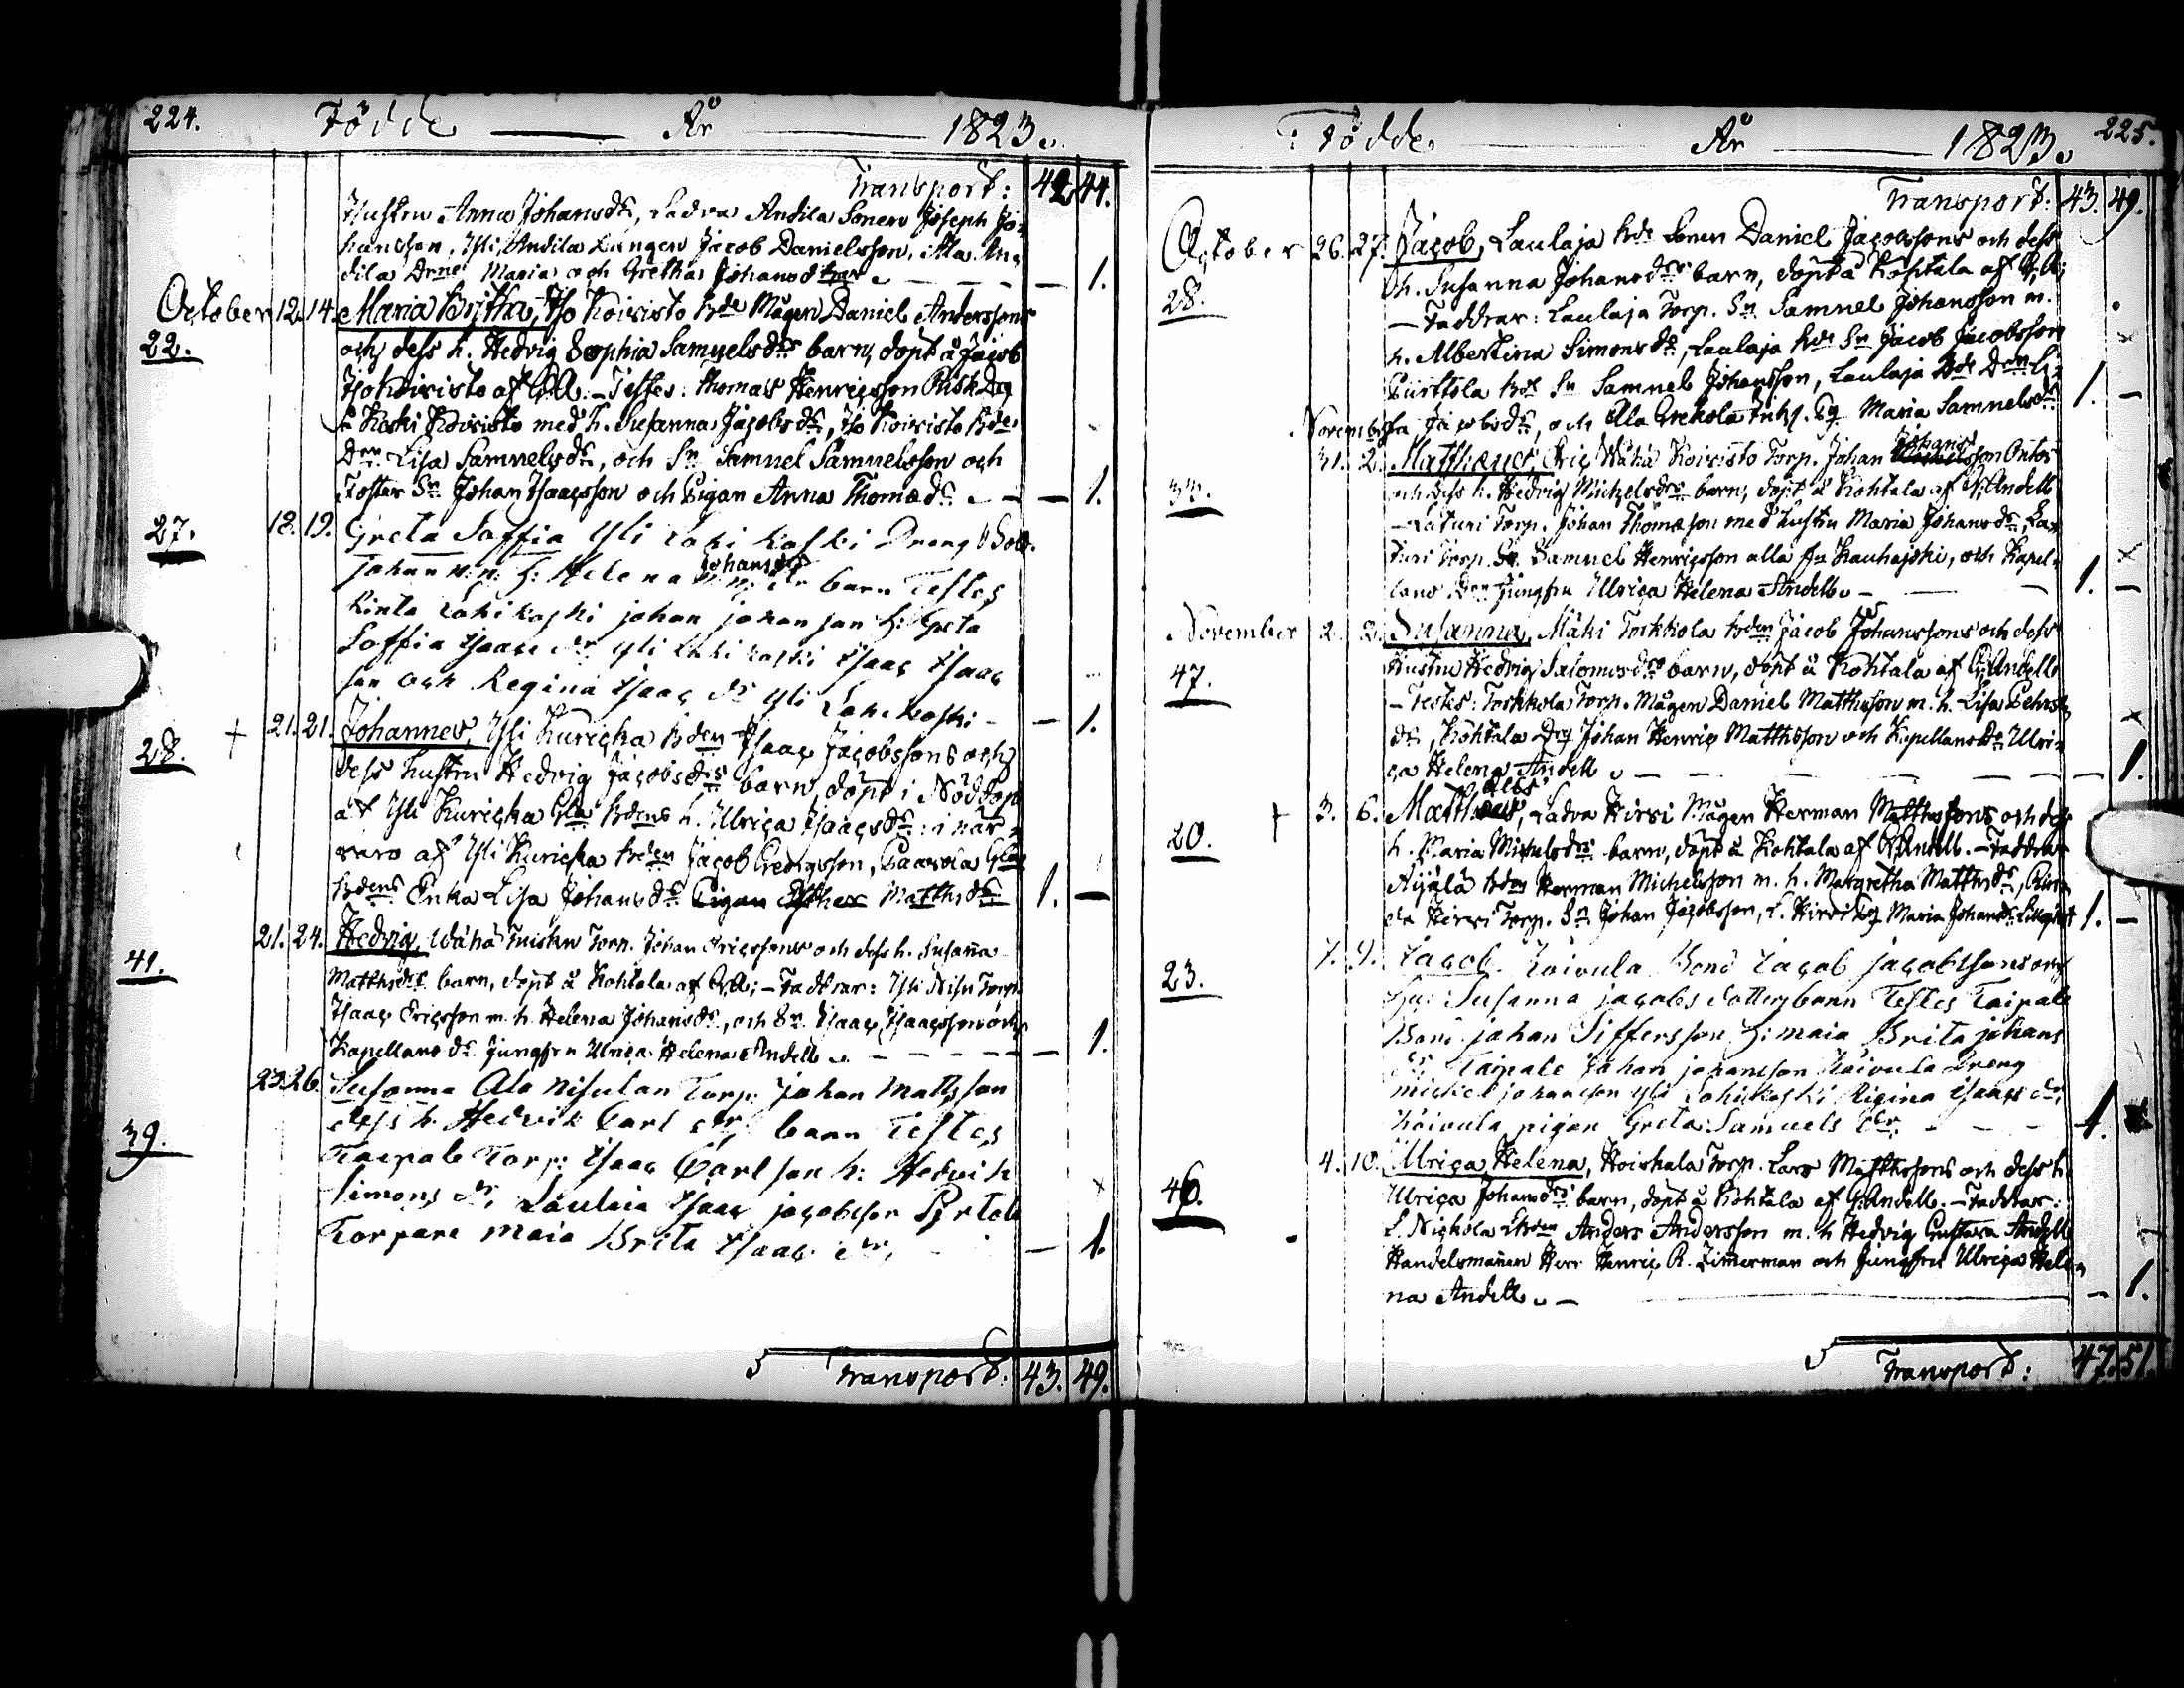 224. Födde År 1823.
Transport: 42 44.
Hustru Anna Johansdr, Ladva Andila Sonen Joseph Jo=
hansson, Yli Andila Lungen Jacob Danielsson, Ala An=
dila Drne Maria och Gretha Johansdtrar. — — 1.
October 12. 14. Maria Britha, Iso Koivisto Bde Mågen Daniel Anderssons
22. och dess h. Hedvig Sophia Samuelsdrs barn, döpt å Jacob
Iso Koivisto af G.A. – Testes: Thomas Henricsson Dg
Koski Koivisto med h. Susanna Jacobsdr, Iso Koivisto Bde
Drn Lisa Samuelsdr, och Sn Samuel Samuelsson och
Foster Sn Johan Isaacsson och Pigan Anna Thomædr. — — 1.
27. 18. 19. Greta Saffia Yli Laki kaski Dreng
Johansdr
johan h: Helena barn Testes
Rinta Lakikaski johan johansson h: Greta
Saffia Isaacs dr Yli Laki kaski Isaac Isaac
son och Regina Isaac dr Yli Lakikaski – — 1.
28. + 21. 21. Johannes, Yli Kuricka Bden Isaac Jacobssons och
dess hustru Hedvig Jacobsdrs barn, döpt i Nöddop
af Yli Kuricka Gla Bdens h. Ulrica Isaacsdr: i när=
varo af Yli Kuricka Bden Jacob Georgsson, Paavola Gla
Bdens Enka Lisa Johansdr Pigan Esther Matthsdr 1. —
41. 21. 24. Hedvig, Wähä Tuisku Torp. Johan Ericssons och dess h. Susana
Matthsdrs barn, döpt å Kohtala af G.A; – Faddrar: Yli Nisu Torp.
Isaac Ericsson m. h. Helena Johansdr, och Sn. Isaac Isaacsson och
Kapellans dr. Jungfru Ulrica Helena Andell. — — — — 1.
39. 23. 26. Susanna Ala Nisulan Torp: Johan Mattsson
dess h. Hedvik Carl dr, barn Testes
Taipale Torp: Isaac Carlson h: Hedvih
Simons dr, Laulaia Isaac jacobsson Pirtola
Torpare maia Brita Isaac dr, — 1.
Transport: 43. 49.
Födde År 1823. 225.
Transport: 43. 49.
October 26. 27. Jacob, Laulaja Bde Sonen Daniel Jacobssons och dess
28. h. Susanna Johansdrs barn, döpt å Kohtala af G.A;
– Faddrar: Laulaja Torp. Sn Samuel Johansson m.
h. Albertina Simonsdr, Laulaja Bde Sn Jacob Jacobsson
Pirttola Bde Sn Samuel Johansson, Laulaja Bde Drn Li=
sa Jacobsdr, och Alla Grekola Inhs. Pg Maria Samuelsdr 1. —
November
Johans
31. 2. Matthæus, Eric Wähä Koivisto Torp. Johan son
33. och dess h. Hedvig Michelsdrs barn, döpt å Kohtala af G. Andell
– Laturi Torp. Johan Thomæson med hustru Maria Johansdr, La=
turi Torp. Sn Samuel Henricsson alla fr Kauhajoki, och Kapel=
lans Drn Jungfru Ulrica Helena Andell. – — 1. —
November 2. 3. Susanna, Mäki Torkkola Bden Jacob Johanssons och dess
47. Hustru Hedvig Salomosdrs barn, döpt å Kohtala af G. Andell
– Testes: Torkkola Torp. Mågen Daniel Matthsson m. h. Lisa Pehrs
dr, Kohtala Dg Johan Henric Matthsson och Kapellans Dr Ulri=
ca Helena Andell. — — — — — 1.
20. + 3. 6. Matth, Ladva Hirvi Mågen Herman Matthssons och dess
h. Maria Michelsdrs barn, döpt å Kohtala af G. Andell. – Faddrar
Äijälä Bden Herman Michelsson m. h. Margretha Matthsdr,
Hirvi Torp. Sn Johan Jacobsson, L. Hirvi Pg Maria Johansdr 1. —
23. 7. 9. Jacob. Koivula Bond Jacob jacobssons och
Hu: Susanna jacobs dotters barn Testes Taipale
Bond johan Siffersson h: maia Brita johans
dr, Taipale johan johansson Koivula Dreng
mickel johansson Yli Lahikoski Rigina Isaacs dr,
Koivula pigan Greta Samuels dr. — — 1.
46. 4. 10. Ulrica Helena, Hoiskala Torp. Lars Matthssons och dess h.
Ulrica Johansdrs barn, döpt å Kohtala af G. Andell. – Faddrar:
L. Nickola Anders Andersson m. h Hedvig Gustava Andell
Handelsmannen Herr Henric R. Zimerman och Jungfru Ulrica Hele
na Andell. — — 1.
Transport: 47. 51.